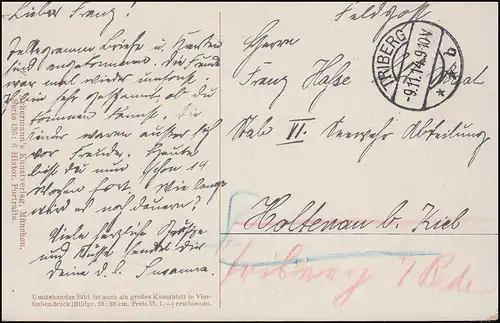 Lieber Franz!
Telegramm Briefe u. Karten
sind angekommen. Die Freude
war mal wieder umsonst.
Bin sehr gespannt ob du
kommen kannst. Die
Kinder waren außer sich
vor Freude. Heute
bist du nun schon 14
Wochen fort. Wie lange
wird es noch dauern?
Viele herzliche Grüße
und Küsse sendet dir
deine d. l. Susanna.
Feldpost
Herrn
Franz Hasse
Stab III. Seewehr Abteilung
Holtenau b. Kiel
Triberg
TRIBERG
-9.11.14.9-10V.
* * b
Ackermann's Kunstverlag, München.
Serie 135: 6 Histor. Portraits.
Umstehendes Bild ist auch als großes Kunstblatt in Vier-
farbendruck (Bildgr. 23:28 cm, Preis M. 1,—) erschienen.